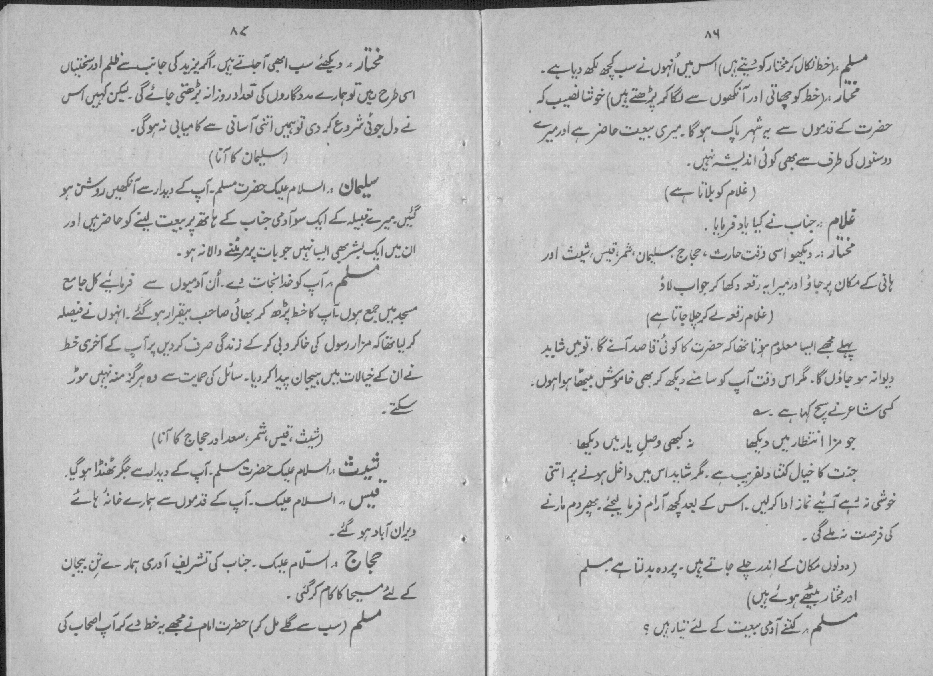 ۸۶
مسلم ،، (خط نکال کر مختار کو دیتے ہیں) اس میں اُنہوں نے سب کچھ لکھ دیا ہے ۔
مختار ،، (خط کو چھاتی اور آنکھوں سے لگا کر پڑھتے ہیں) خوشا نصیب کہ
حضرت کے قدموں سے یہ شہر پاک ہوگا ۔ میری بیعت حاضر ہے اور میرے
دوستوں کی طرف سے بھی کوئی اندیشہ نہیں ۔
(غلام کو بلاتا ہے)
غلام ،، جناب نے کیا یاد فرمایا ۔
مختار ،، دیکھو اسی وقت حارث ، حجاج ، سلیمان ، شمر ، قیس ، شیث اور
ہانی کے مکان پر جاؤ اور میرا یہ رقعہ دکھا کر جواب لاؤ
(غلام رقعہ لے کر چلا جاتا ہے)
پہلے مجھے ایسا معلوم ہوتا تھا کہ حضرت کا کوئی قاصد آئے گا ، تو میں شاید
دیوانہ ہو جاؤں گا ۔ مگر اس وقت آپ کو سامنے دیکھ کر بھی خاموش بیٹھا ہوا ہوں ۔
کسی شاعر نے سچ کہا ہے ۔ ؎
جو مزا انتظار میں دیکھا نہ کبھی وصلِ یار میں دیکھا
جنت کا خیال کتنا دلفریب ہے ۔ مگر شاید اس میں داخل ہونے پر اتنی
خوشی نہ رہے آئیے نماز ادا کر لیں ۔ اس کے بعد کچھ آرام فرما لیجئے ۔ پھر دم مارنے
کی فرصت نہ ملے گی ۔
(دونوں مکان کے اندر چلے جاتے ہیں ۔ پردہ بدلتا ہے مسلم
اور مختار بیٹھے ہوئے ہیں)
مسلم ،، کتنے آدمی بیعت کے لئے تیار ہیں ؟
۸۷
مختار ،، دیکھئے سب ابھی آ جاتے ہیں ۔ اگر یزید کی جانب سے ظلم اور سختیاں
اسی طرح رہیں تو ہمارے مددگاروں کی تعداد روزانہ بڑھتی جائے گی ۔ لیکن کہیں اس
نے دل جوئی شروع کر دی تو ہمیں اتنی آسانی سے کامیابی نہ ہوگی ۔
(سلیمان کا آنا)
سلیمان ،، السلام علیک حضرت مسلم ۔ آپ کے دیدار سے آنکھیں روشن ہو
گئیں ۔ میرے قبیلہ کے ایک سو آدمی جناب کے ہاتھ پر بیعت لینے کو حاضر ہیں اور
ان میں ایک بشر بھی ایسا نہیں جو بات پر مر مٹنے والا نہ ہو ۔
مسلم ،، آپ کو خدا نجات دے ۔ اُن آدمیوں سے فرمائیے کل جامع
مسجد میں جمع ہوں ۔ آپ کا خط پڑھ کر بھائی صاحب بیقرار ہو گئے ۔ انہوں نے فیصلہ
کر لیا تھا کہ مزار رسول کی خاکروبی کر کے زندگی صرف کر دیں پر آپ کے آخری خط
نے ان کے خیالات میں ہیجان پیدا کر دیا ۔ سائل کی حمایت سے وہ ہرگز منہ نہیں موڑ
سکتے ۔
(شیث ، قیس ، شمر ، سعد اور حجاج کا آنا)
شیث ،، السلام علیک حضرت مسلم ۔ آپ کے دیدار سے جگر ٹھنڈا ہو گیا
قیس ،، السلام علیک ۔ آپ کے قدموں سے ہمارے خانہ ہائے
ویران آباد ہو گئے ۔
حجاج ،، السّلام علیک ۔ جناب کی تشریف آوری ہمارے تن بیجان
کے لئے مسیحا کا کام کر گئی ۔
مسلم (سب سے گلے مل کر) حضرت امام نے مجھے یہ خط دے کر آپ اصحاب کی